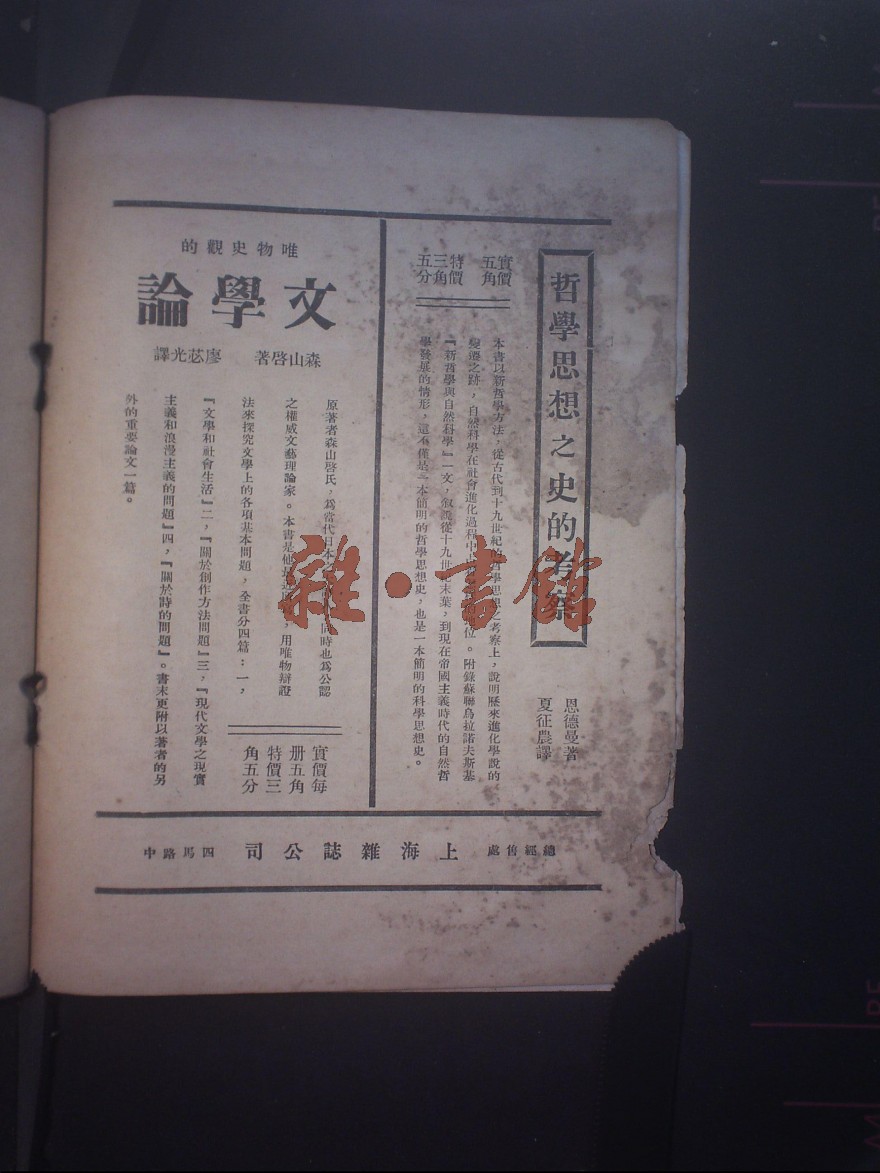 哲學思想之史的考察
恩德曼著
夏征農譯
實價
五角
特價
三角
五分
本書以新哲學方法，從古代到十九世紀的哲學思想之考察上，說明歷來進化學說的
變遷之跡，自然科學在社會進化過程中位。附錄蘇聯烏拉諾夫斯基
『新哲學與自然科學』一文，敘說從十九世紀末葉，到現在帝國主義時代的自然哲
學發展的情形，這不僅是一本簡明的哲學思想史，也是一本簡明的科學思想史。
唯物史觀的
文學論
森山啓著 廖苾光譯
原著者森山啓氏，爲當代日本同時也爲公認
之權威文藝理論家。本書是他最近，用唯物辯證
法來探究文學上的各項基本問題，全書分四篇：一，
『文學和社會生活』二，『關於創作方法問題』三，『現代文學之現實
主義和浪漫主義的問題』四，『關於詩的問題』。書末更附以著者的另
外的重要論文一篇。
實價每
册五角
特價三
角五分
總經售處 上海雜誌公司 四馬路中
雜·書館